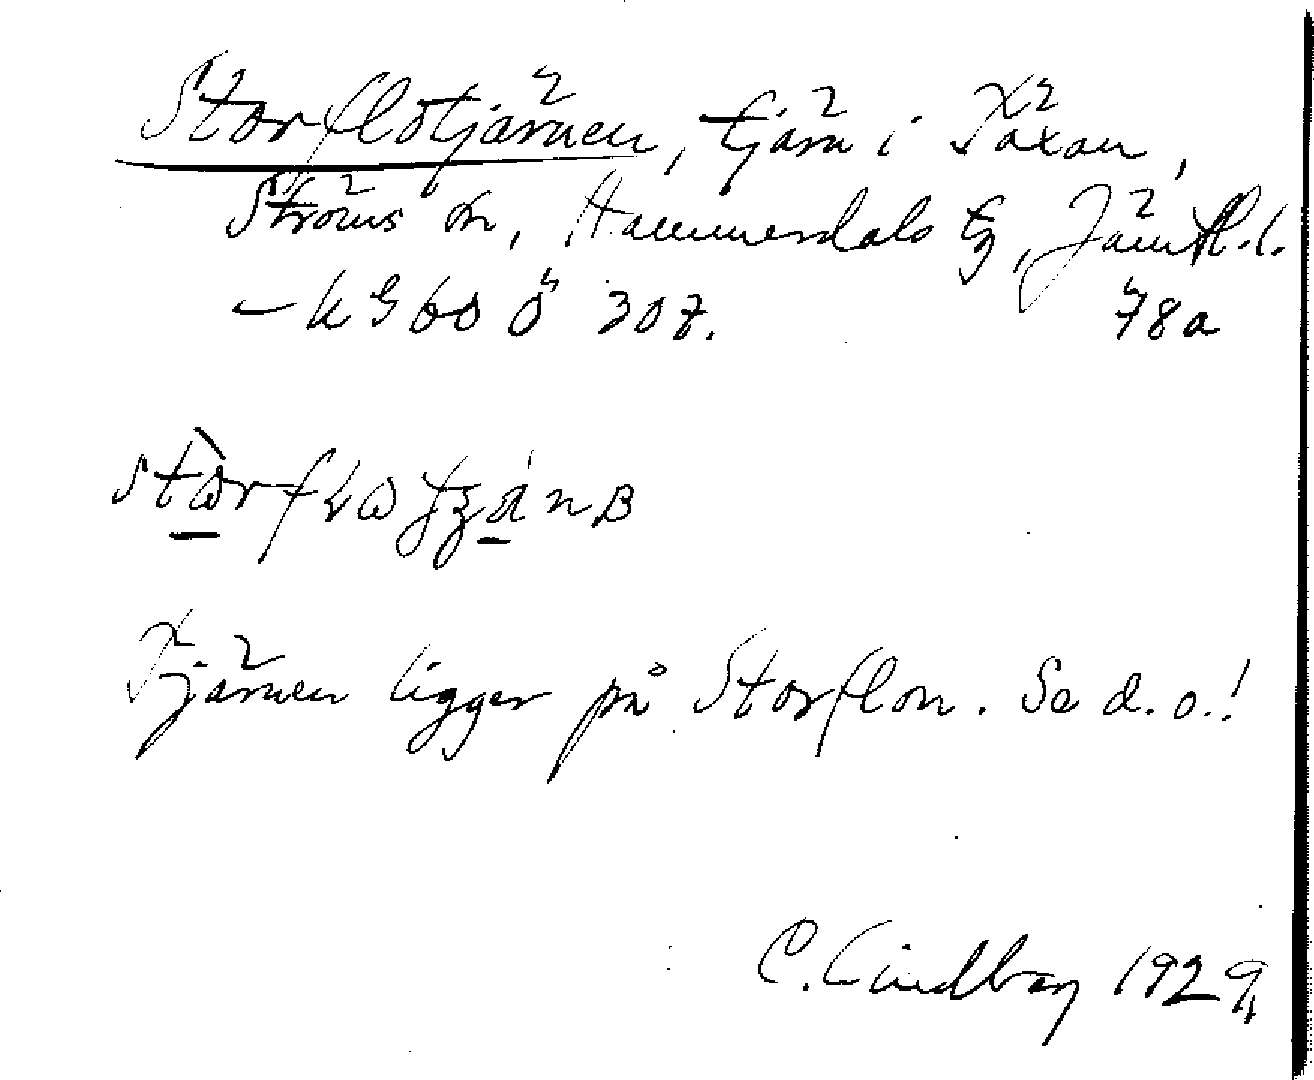 Storflotjärnen, tjärn i Täxan,
Ströms sn, Hammerdals tg, Jämtl. l.
78a
Tjärnen ligger på Storflon. Se d. o.!
C. Lindberg 1929